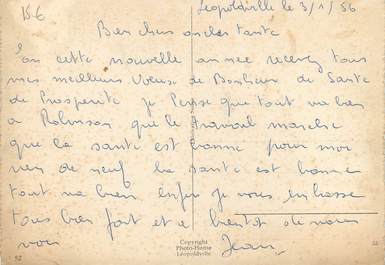 156
Leopoldville le 3/1/56
Bien chers oncles tante
En cette nouvelle année recevez tous
mes meilleurs Voeux de Bonheur de Santé
de Prosperité je Pense que tout va bien
a Robinson que le travail marche
que la santé est bonne pour moi
rien de neuf la santé est bonne
tout va bien enfin je vous embrasse
tous bien fort et a bientot de nous
voir
Jean
Copyright
Photo-Home
Léopoldville
52